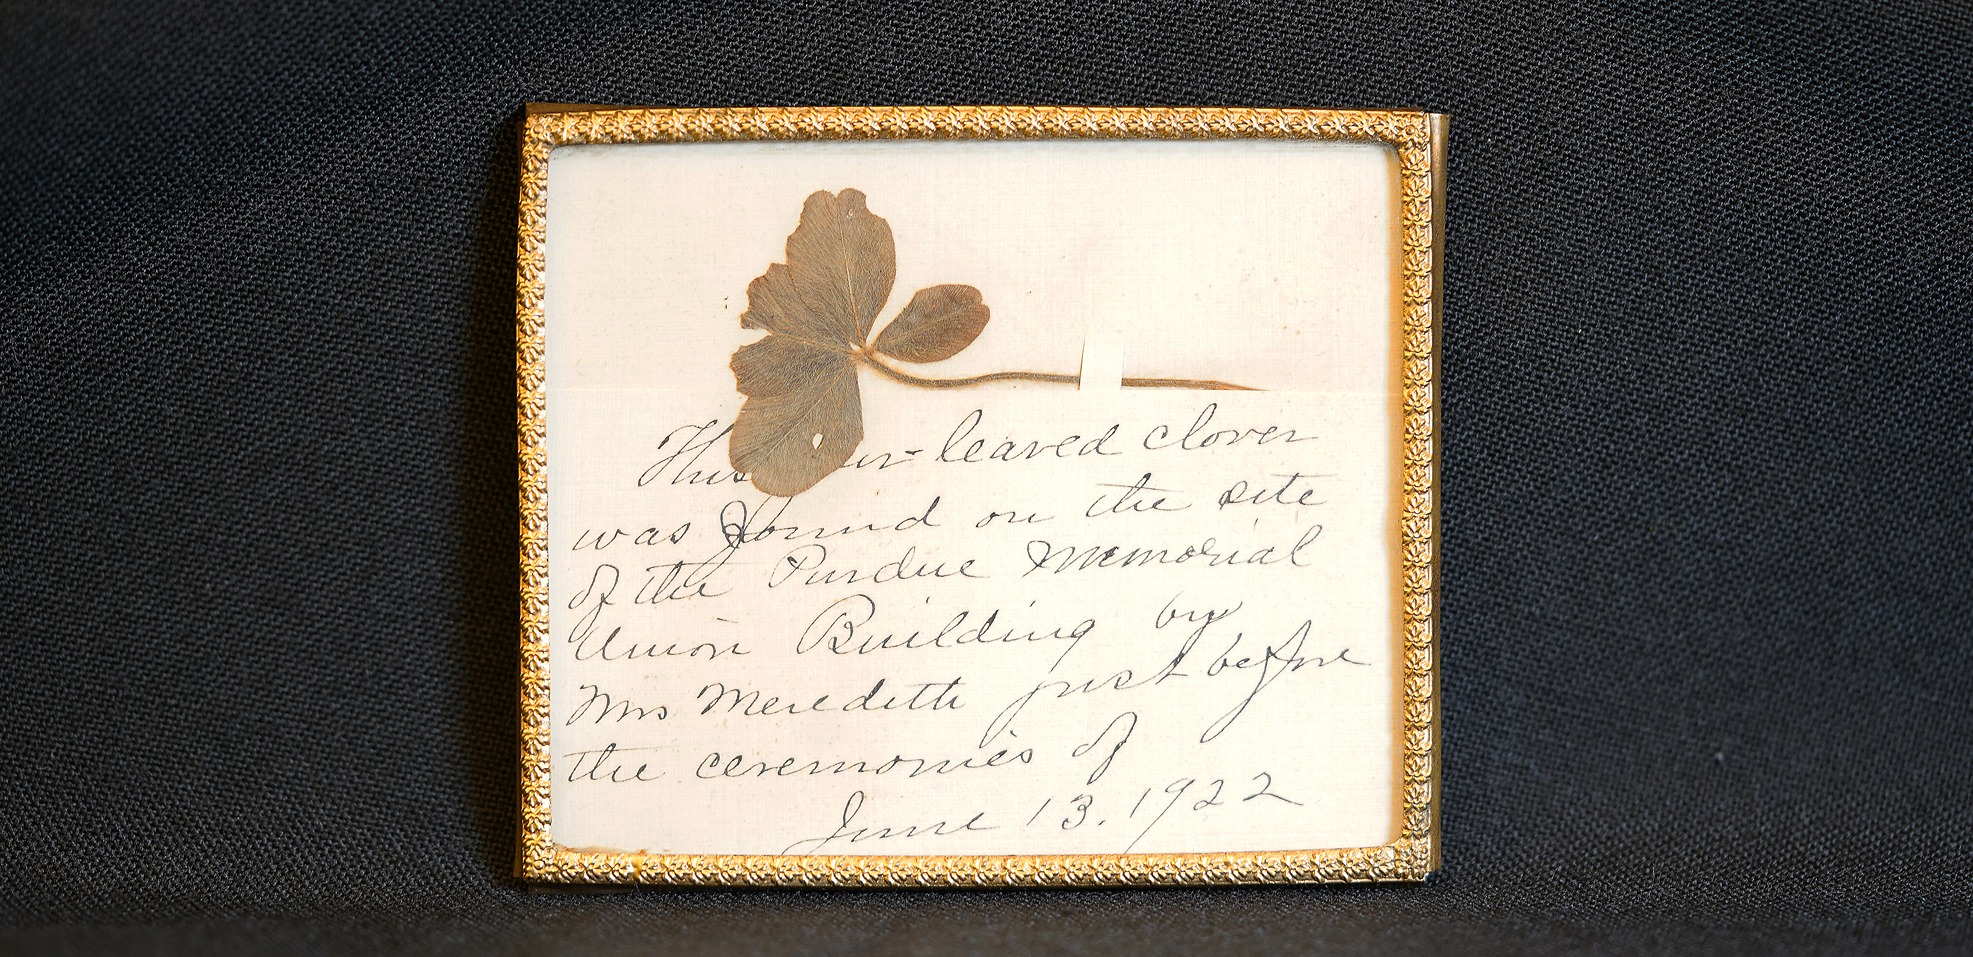 This ur-leaved clover
was found on the site
of the Purdue Memorial
Union Building by
Mrs Meredith just before
the ceremonies of
June 13. 1922